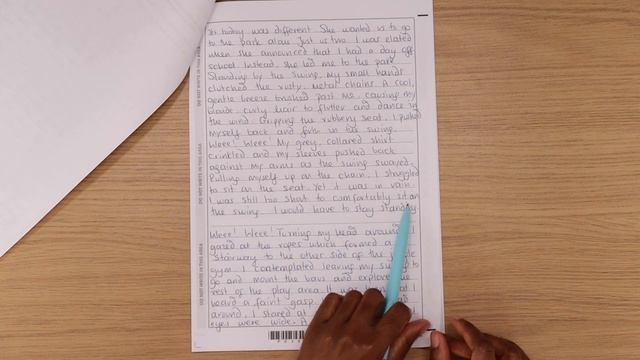 But today was different. She wanted us to go
to the park alone. Just us two. I was elated
when she announced that I had a day off
school. Instead, she led me to the park.
Standing by the swing, my small hands
clutched the rusty, metal chains. A cool,
gentle breeze brushed past me, causing my
blonde, curly hair to flutter and dance in
the wind. Gripping the rubbery seat, I pushed
myself back and forth in the swing.
Weee! Weee! My grey, collared shirt
crinkled and my sleeves pushed back
against my arms as the swing swayed.
Pulling myself up on the chain, I struggled
to sit on the seat. Yet it was in vain.
I was still too short to comfortably sit on
the swing. I would have to stay standing.
Weee! Weee! Turning my head around, I
gazed at the ropes which formed a
stairway to the other side of the
gym. I contemplated leaving my swing to
go and mount the bars and explore the
rest of the play area. It was I
heard a faint gasp.
around, I stared at
eyes were wide.
DO NOT WRITE IN THIS AREA
DO NOT WRITE IN THIS AREA
DO NOT WRITE IN THIS AREA